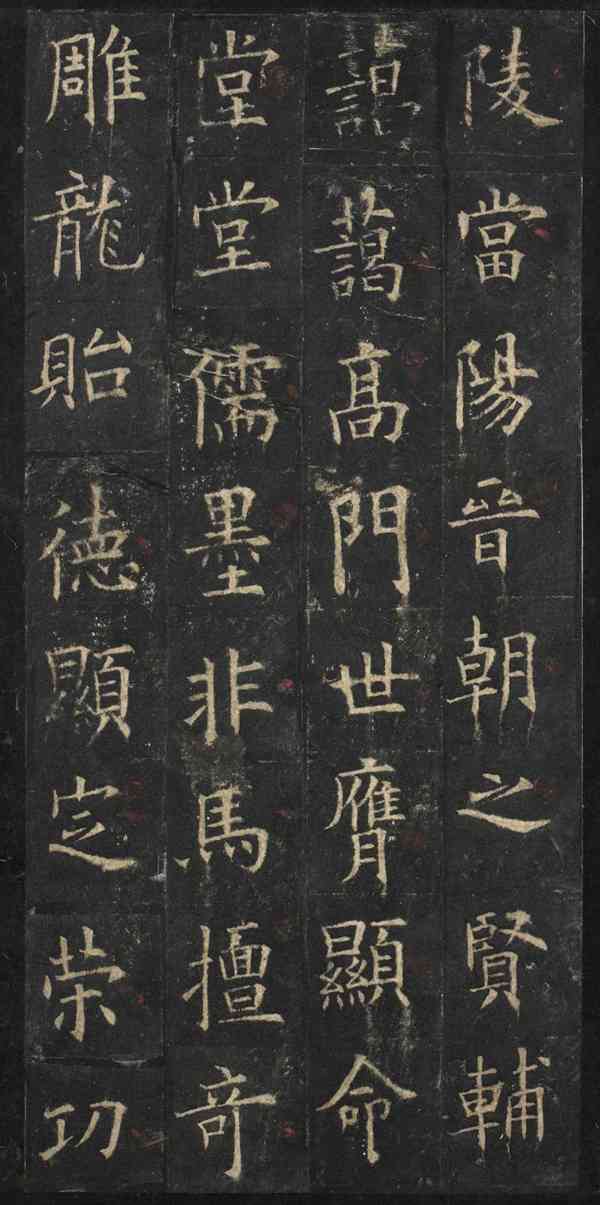 陵當陽晉朝之賢輔
藹藹髙門世膺顯命
堂堂儒墨非馬擅奇
雕龍貽徳顕定荣功